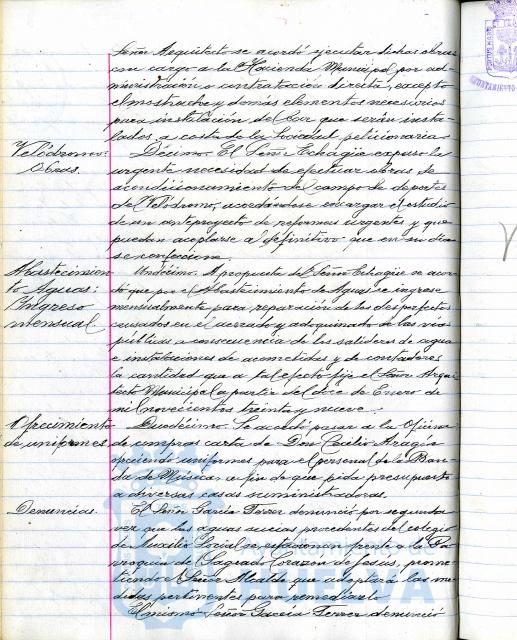 Señor Arquitecto se acordó ejecutar dichas obras
con cargo a la Hacienda Municipal por ad-
ministración o contratación directa, excepto
el mostrador y demás elementos necesarios
para instalación del bar que serán insta-
lados a costa de la Sociedad peticionaria
Velódromo:
Obras.
Décimo. El Señor Echagüe expuso la
urgente necesidad de efectuar obras de
acondicionamiento del campo de deportes
del Velódromo, acordándose encargar el estudio
de un anteproyecto de reformas urgentes y que
puedan acoplarse al definitivo que en su dia
se confeccione.
Abastecimien
to Aguas:
Ingreso
mensual
Undécimo. A propuesta del Señor Echagüe se acor
dó que por el Abastecimiento de Aguas se ingrese
mensualmente para reparación de los desperfectos
causados en el acerado y adoquinado de las vias
públicas a consecuencia de las salideros de agua
e instalaciones de acometidas y de contadores
la cantidad que a tal efecto fije el Señor Arqui
tecto Municipal a partir del doce de Enero de
mil novecientos treinta y nueve.
Ofrecimiento
de uniformes
Duodécimo. Se acordó pasar a la Oficina
de compras carta de Don Cecilio Aragón
ofreciendo uniformes para el personal de la Ban-
da de Música a fin de que pida presupuesto
a diversas casas suministradoras.
Denuncias.
El Señor García Ferrer denunció por segunda
vez que las aguas sucias procedentes del colegio
de Auxilio Social se estacionan frente a la Pa
rroquia del Sagrado Corazon de Jesús, prome
tiendo el Señor Alcalde que adoptará las me
didas pertinentes para remediarlo
El mismo Señor García Ferrer denunció